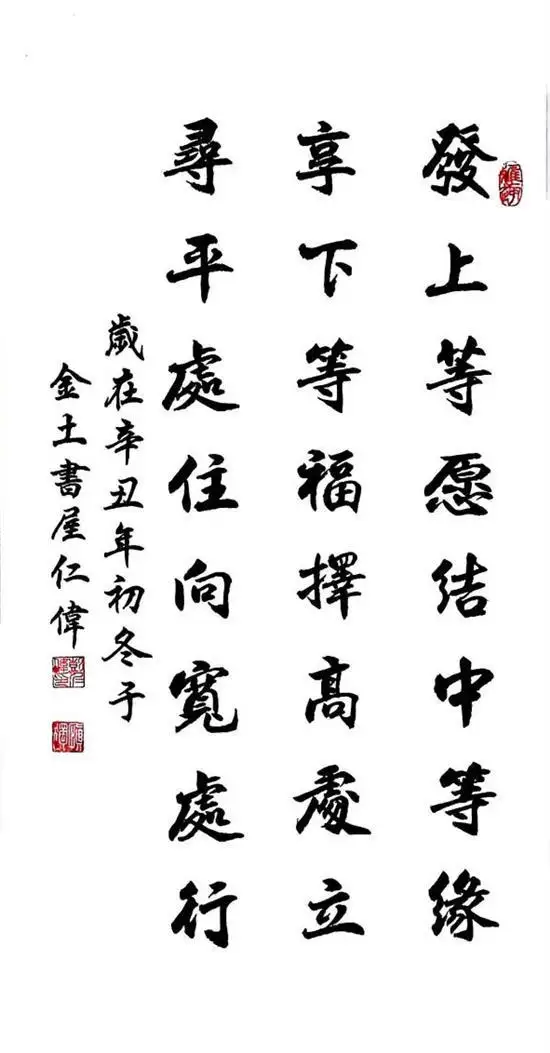 發上等愿结中等緣
享下等福擇高處立
尋平處住向寬處行
歲在辛丑年初冬子
金土書屋仁偉